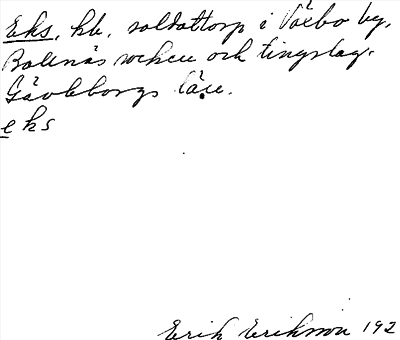 Eks, hb, soldattorp i Växbo by,
Bollnäs socken och tingslag.
Gävleborgs län.
eks
Erik Eriksson 192